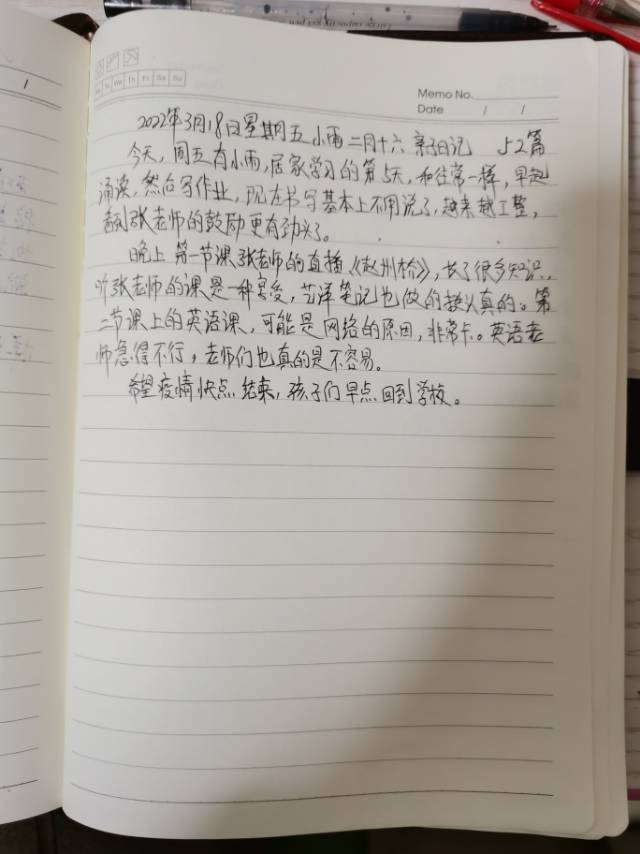 Tu We Th Fr Sa Su
Memo No.
Date / /
2022年3月18日星期五小雨二月十六 亲子日记 52篇
今天,周五有小雨,居家学习的第5天,和往常一样,早起
诵读,然后写作业,现在书写基本上不用说了,越来越工整,
看到张老师的鼓励更有劲头了。
晚上第一节课张老师的直播《赵州桥》,长了很多知识,
听张老师的课是一种享受,艺泽笔记也做的挺认真的。第
二节课上的英语课,可能是网络的原因,非常卡。英语老
师急得不行,老师们也真的是不容易。
希望疫情快点结束,孩子们早点回到学校。